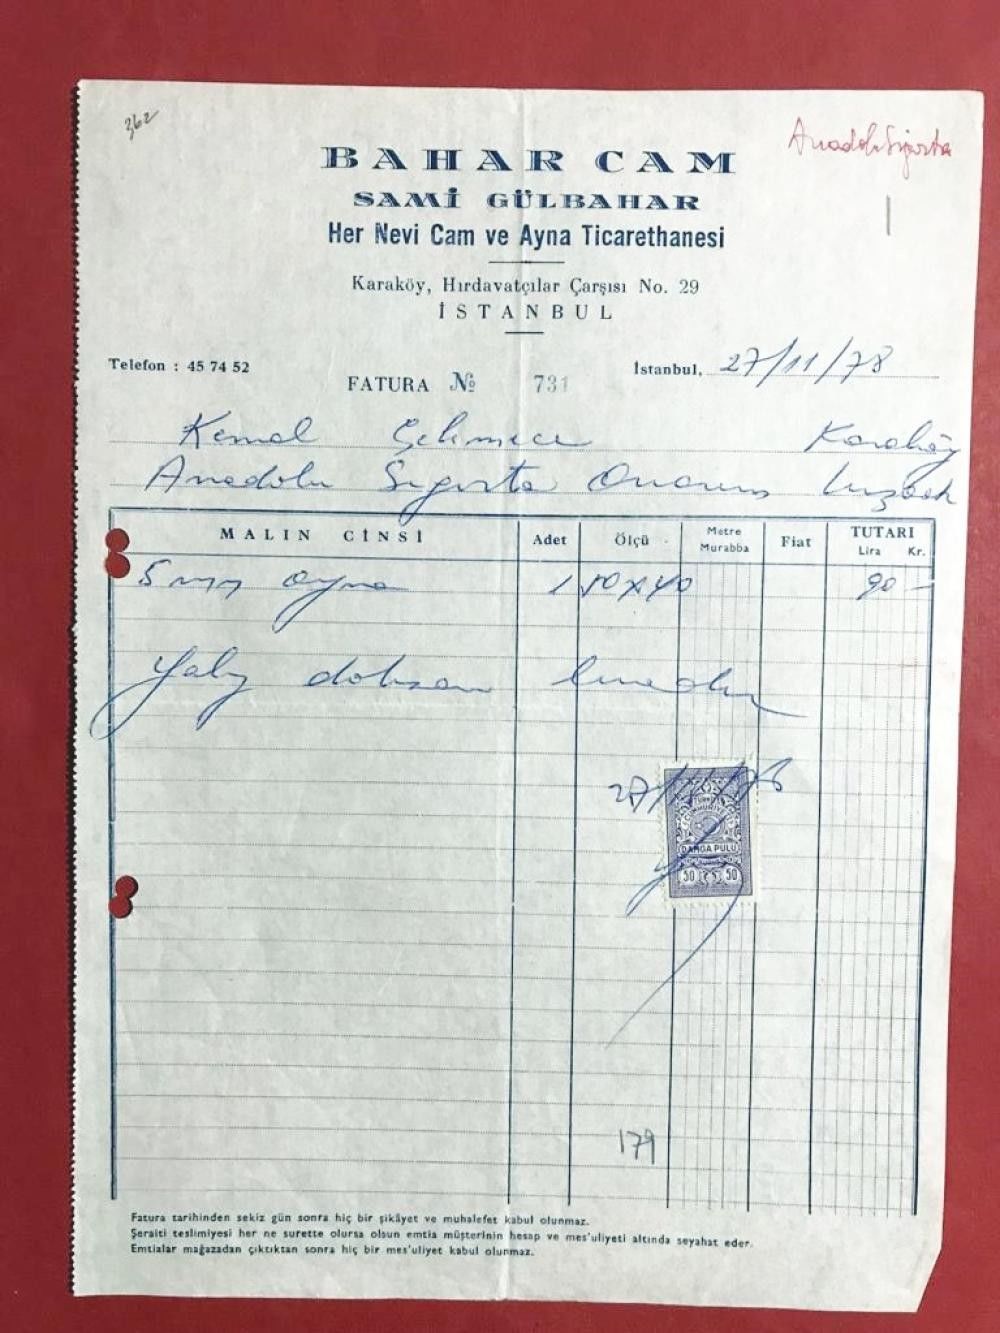 362
Anadolu Sigorta
BAHAR CAM
SAMİ GÜLBAHAR
Her Nevi Cam ve Ayna Ticarethanesi
Karaköy, Hırdavatçılar Çarşısı No. 29
İSTANBUL
Telefon : 45 74 52
İstanbul, 27/11/78
FATURA № 731
Kemal Karaköy
Anadolu Sigorta
MALIN CİNSİ Adet Ölçü Metre Murabba Fiat TUTARI Lira Kr.
5 mm ayna 1 50x40 90 -
Yalnız doksan liradır
27/11/78
TÜRKİYE CUMHURİYETİ
DAMGA PULU
50 50
179
Fatura tarihinden sekiz gün sonra hiç bir şikâyet ve muhalefet kabul olunmaz.
Şeraiti teslimiyesi her ne surette olursa olsun emtia müşterinin hesap ve mes'uliyeti altında seyahat eder.
Emtialar mağazadan çıktıktan sonra hiç bir mes'uliyet kabul olunmaz.